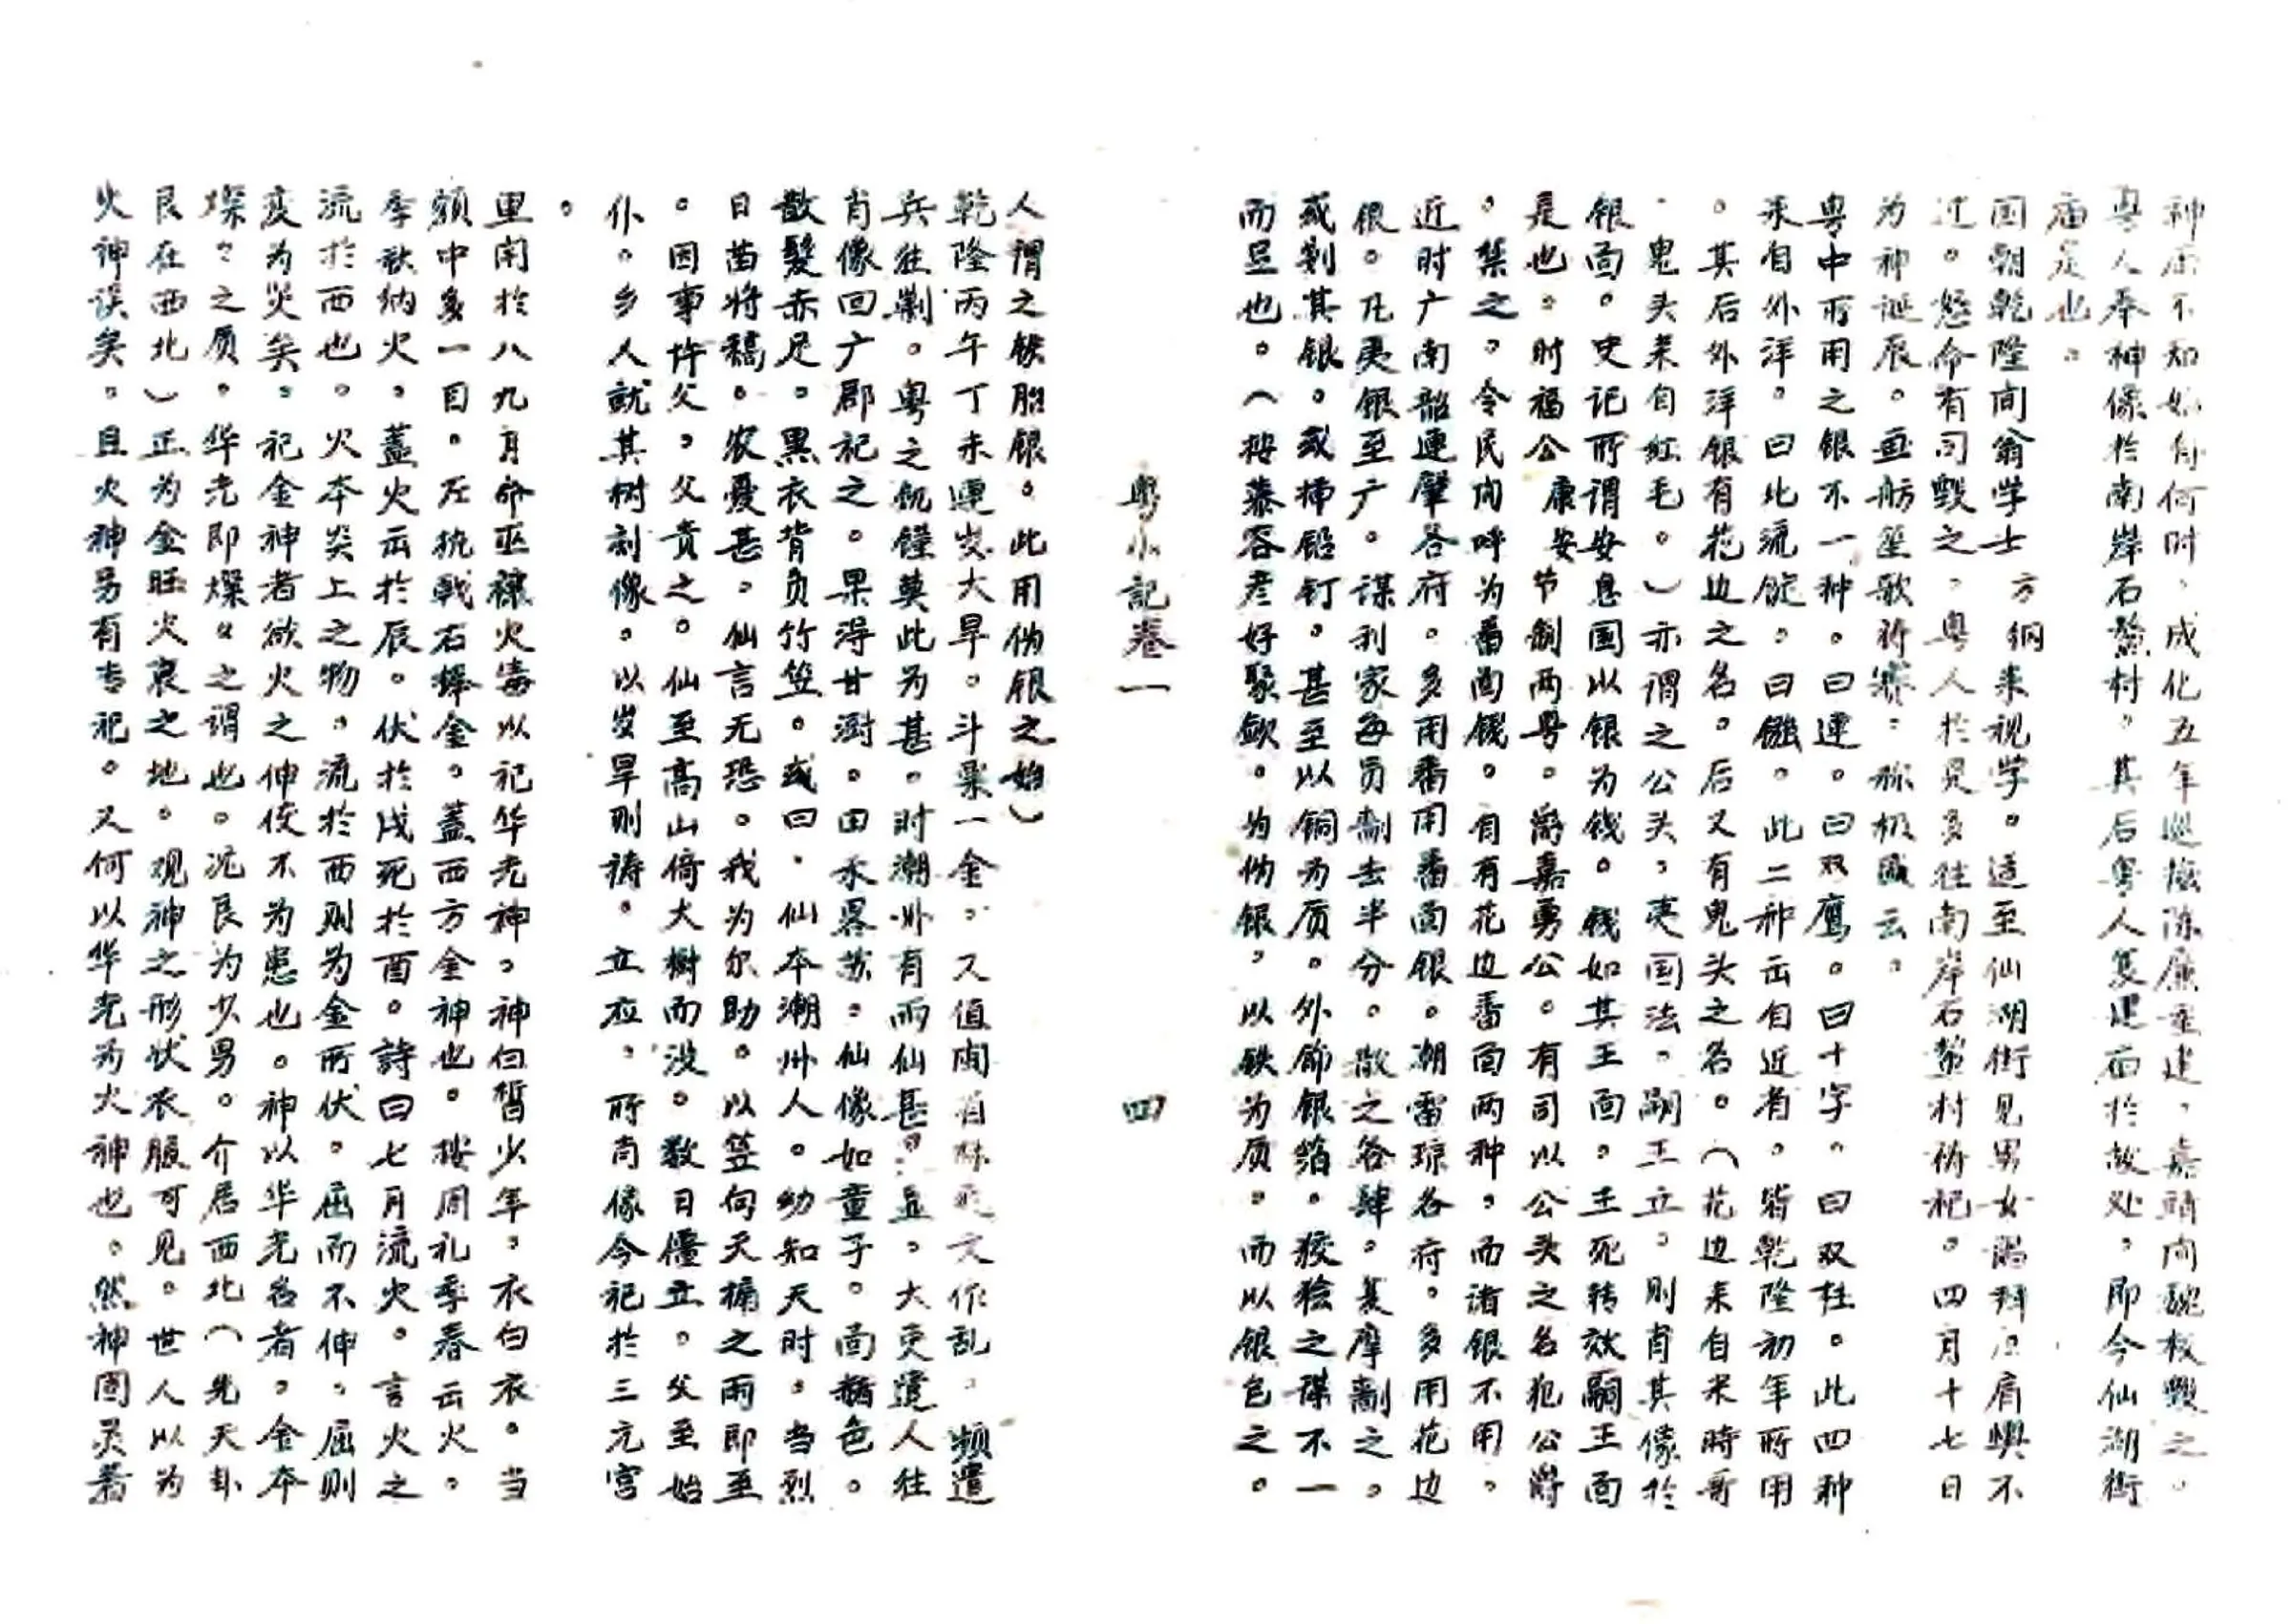 神庙不知始自何时，成化五年巡抚陈廉重建，嘉靖间魏校毁之。
粤人奉神像於南岸石鳌村。其后粤人复建庙於故处，即今仙湖街
庙是也。
国朝乾隆间翁学士方纲来视学。适至仙湖街见男女膜拜，肩舆不
过。怒命有司毁之，粤人於是多往南岸石鳌村祷祀。四月十七日
为神诞辰。画舫笙歌祈赛，称极盛云。
粤中所用之银不一种。曰连。曰双鹰。曰十字。曰双柱。此四种
来自外洋。曰北流锭。曰鏹。此二种出自近者。皆乾隆初年所用
。其后外洋银有花边之名。后又有鬼头之名。（花边来自米時哥
，鬼头来自红毛。）亦谓之公头，夷国法，嗣王立，则肖其像於
银面。史记所谓安息国以银为钱。钱如其王面。王死转效嗣王面
是也。时福公康安节制两粤。爵嘉勇公。有司以公头之名犯公爵
。禁之。令民间呼为番面钱。有有花边番面两种，而诸银不用。
近时广南韶连肇各府。多用番用番面银。潮雷琼各府。多用花边
银。凡夷银至广。谋利家每员劃去半分。散之各肆。复摩劃之。
或剥其银。或挿铅钉。甚至以铜为质。外饰银箔。狡狯之谋不一
而足也。（按慕容彦好聚歛。为伪银，以铁为质。而以银包之。
粤小記卷一　四
人谓之铁胎银。此用伪银之始）
乾隆丙午丁未連岁大旱。斗粟一金。又值閩省林爽文作乱，频遣
兵往剿。粤之飢饉莫此为甚。时潮州有雨仙甚灵，大吏遣人往
肖像回广郡祀之。果得甘澍。田禾畧苏。仙像如童子。面赭色。
散髮赤足。黑衣背负竹笠。或曰，仙本潮州人。幼知天时。当烈
日苗将稿。农憂甚。仙言无恐。我为尔助。以笠向天摘之雨即至
。因事忤父，父责之。仙至高山倚大樹而没。数日僵立。父至始
仆。乡人就其树刻像。以岁旱则祷。立应，所肖像今祀於三元宫
。
里閈於八九月命巫禳火毒以祀华光神，神白晳少年，衣白衣。当
额中多一目。左执戟右擇金。蓋西方金神也。按周礼季春云火。
季秋纳火，蓋火出於辰。伏於戌死於酉。詩曰七月流火。言火之
流於西也。火本炎上之物。流於西则为金所伏。屈而不伸，屈则
变为災矣。祀金神者欲火之伸俊不为患也。神以华光名者，金本
燦〻之质。华光即燦〻之谓也。况艮为少男。介居西北（先天卦
艮在西北）正为金旺火衰之地。观神之形状衣服可见。世人以为
火神误矣。且火神另有专祀。又何以华光为火神也。然神固灵著